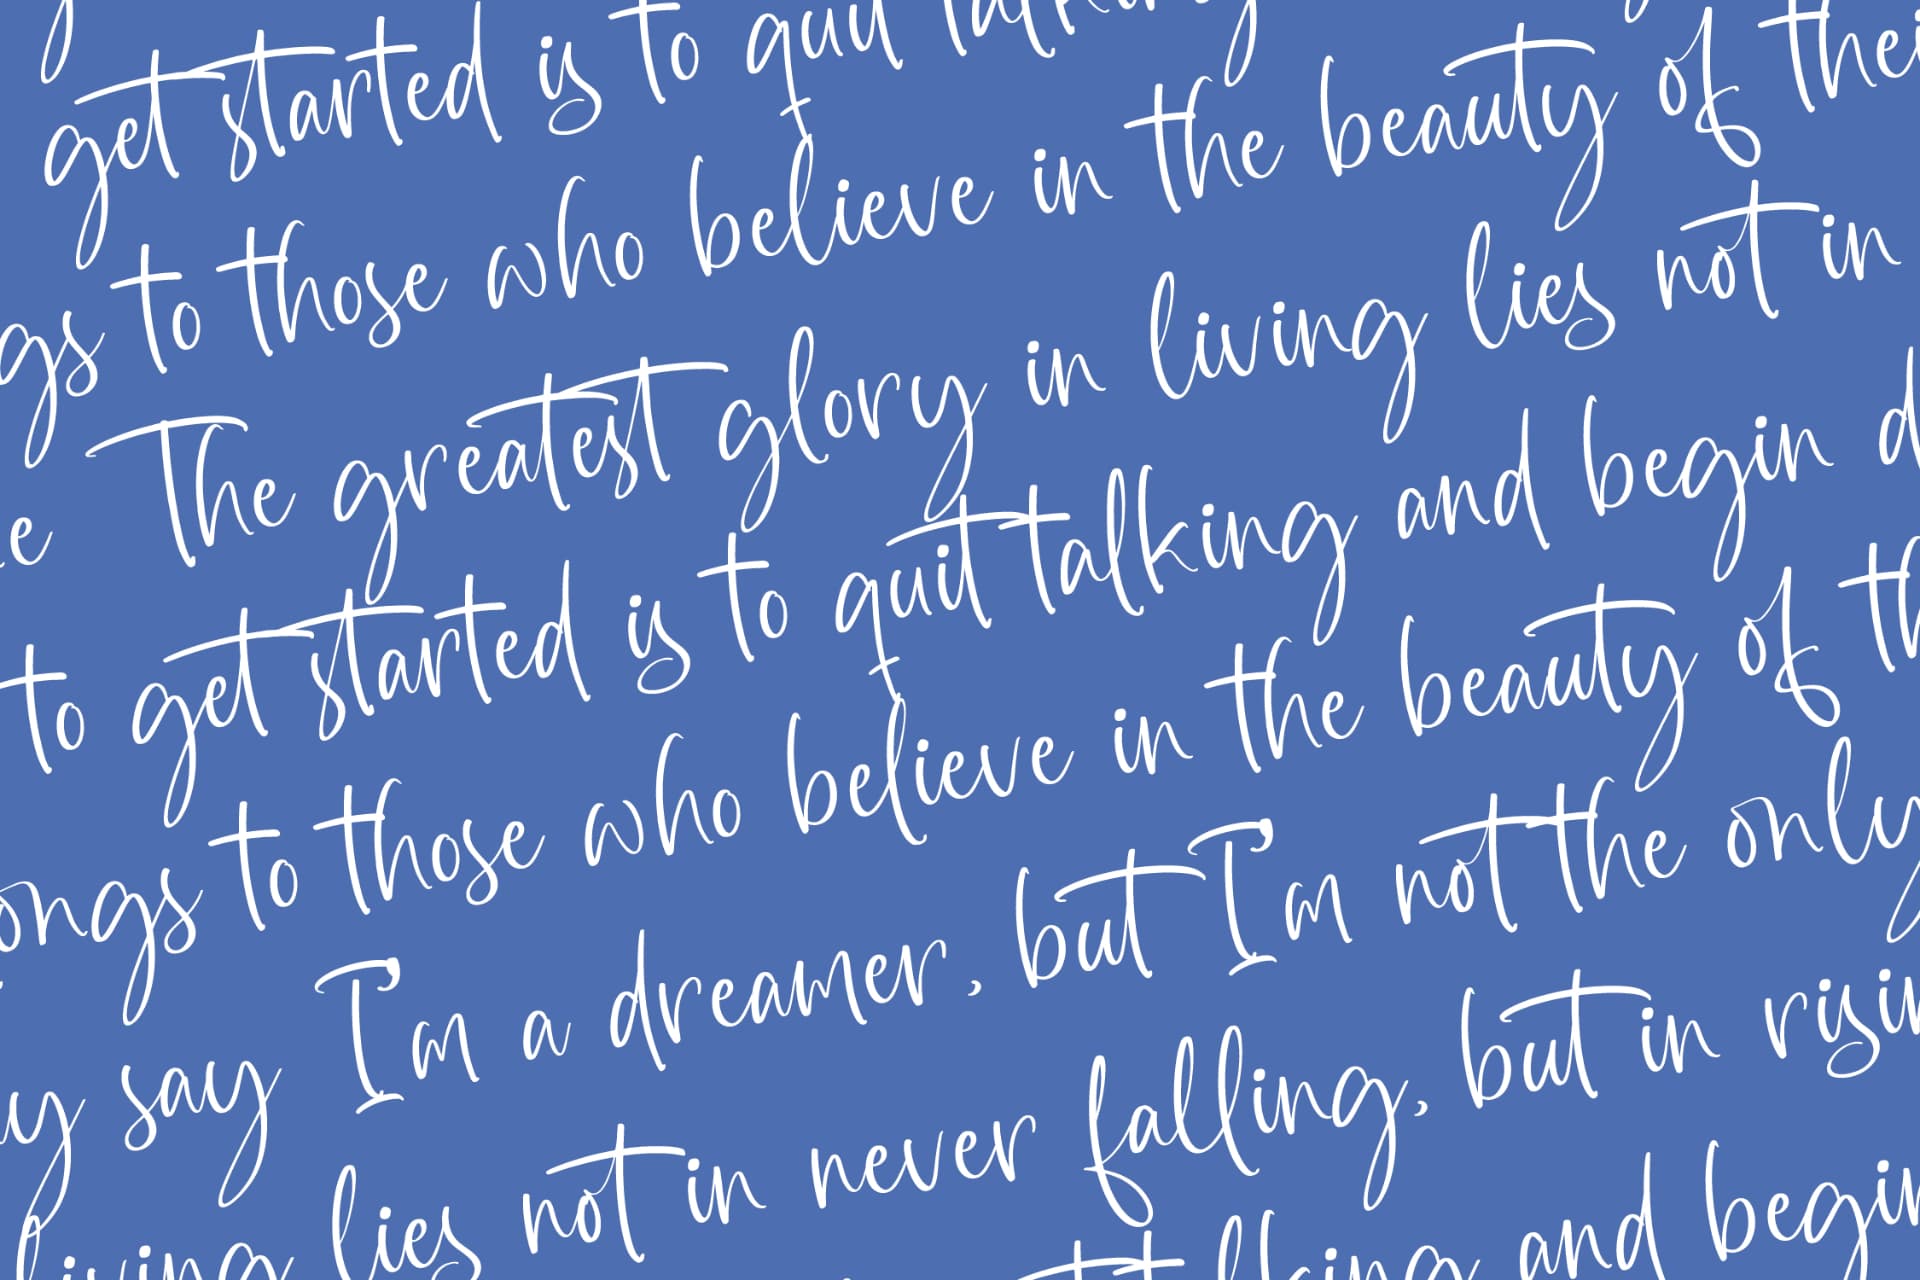 get started is to quit talking
to those who believe in the beauty of
The greatest glory in living lies not in
to get started is to quit talking and begin
to those who believe in the beauty of
say I'm a dreamer, but I'm not the only
living lies not in never falling, but in
and begin